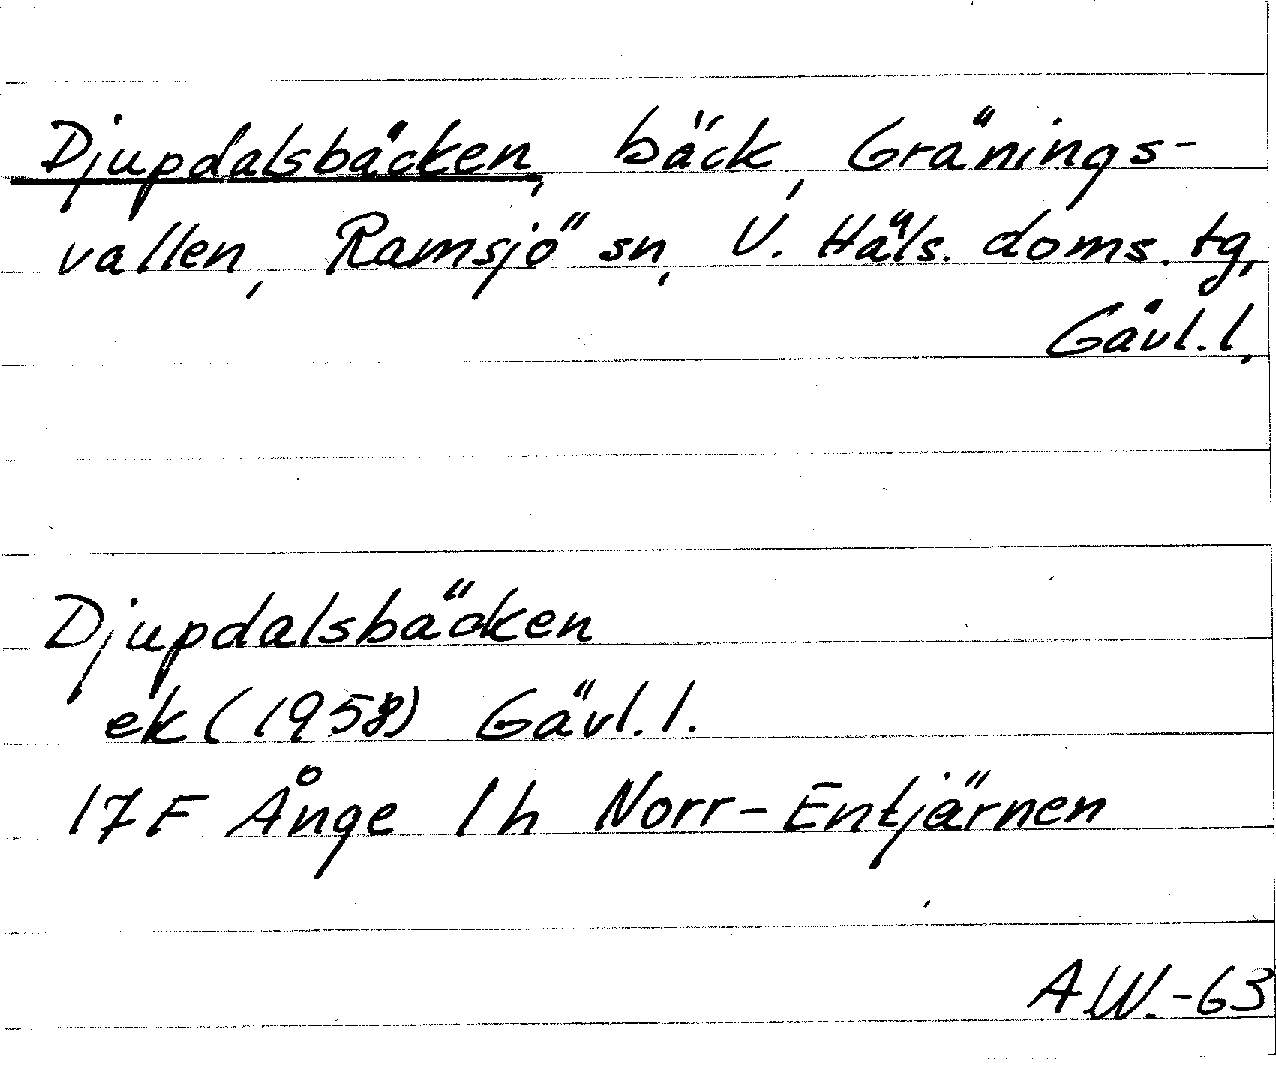 Djupdalsbäcken, bäck, Gränings-
vallen, Ramsjö sn, V. Häls. doms. tg,
Gävl. l.
Djupdalsbäcken
ek (1958) Gävl. l.
17F Ånge 1h Norr-Entjärnen
AW.-63